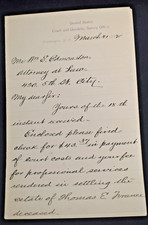 March 21-2
Mr. Wm E. Edmonston
Attorney at Law
420. 5th St. City.
My dear Sir:
Yours of the 18th
instant received.
Enclosed please find
check for $43.50 in payment
of court costs and your fee
for professional services
rendered in settling the
estate of Thomas E.
deceased